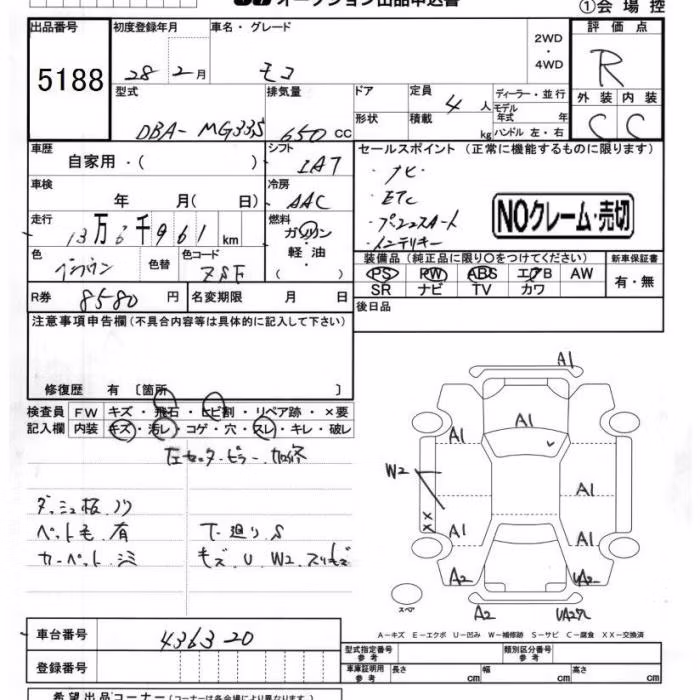 オークション出品申込書
①会場控
出品番号
5188
初度登録年月
28 年 2 月
車名・グレード
モコ
2WD
・
4WD
評価点
R
外装 内装
C C
型式
DBA-MG33S
排気量
650 cc
ドア
形状
定員
4 人
積載
kg
ディーラー・並行
モデル
年式 年
ハンドル 左・右
車歴
自家用・( )
シフト
IAT
車検
年 月( 日)
冷房
AAC
走行
13万6千961 km
燃料
ガソリン
・
軽油
・
( )
色
ブラウン
色替
色コード
ZSF
R券
8580 円
名変期限 月 日
セールスポイント(正常に機能するものに限ります)
・ナビ・
・ETC
・プッシュスタート
・インテリキー
NOクレーム・売切
装備品(純正品に限り〇をつけてください)
PS PW ABS エアB AW
SR ナビ TV カワ
新車保証書
有・無
後日品
注意事項申告欄(不具合内容等は具体的に記入して下さい)
修復歴 有〔箇所 〕
検査員
記入欄
FW キズ・飛石・ヒビ割・リペア跡・×要
内装 キズ・汚レ・コゲ・穴・スレ・キレ・破レ
左センターピラー加修
ダッシュ板ノリ
ペット毛有
カーペットシミ
下廻りS
キズ U W2 スリキズ
A1
A1
A1
W2
A1
A1
XX
A1
A1
A2
UA2
スペア
A2
UA2
A-キズ E-エクボ U-凹み W-補修跡 S-サビ C-腐食 XX-交換済
車台番号
436320
登録番号
型式指定番号
参考
類別区分番号
参考
車庫証明用
参考
長さ cm
幅 cm
高さ cm
希望出品コーナー(コーナーは各会場により異なります。)